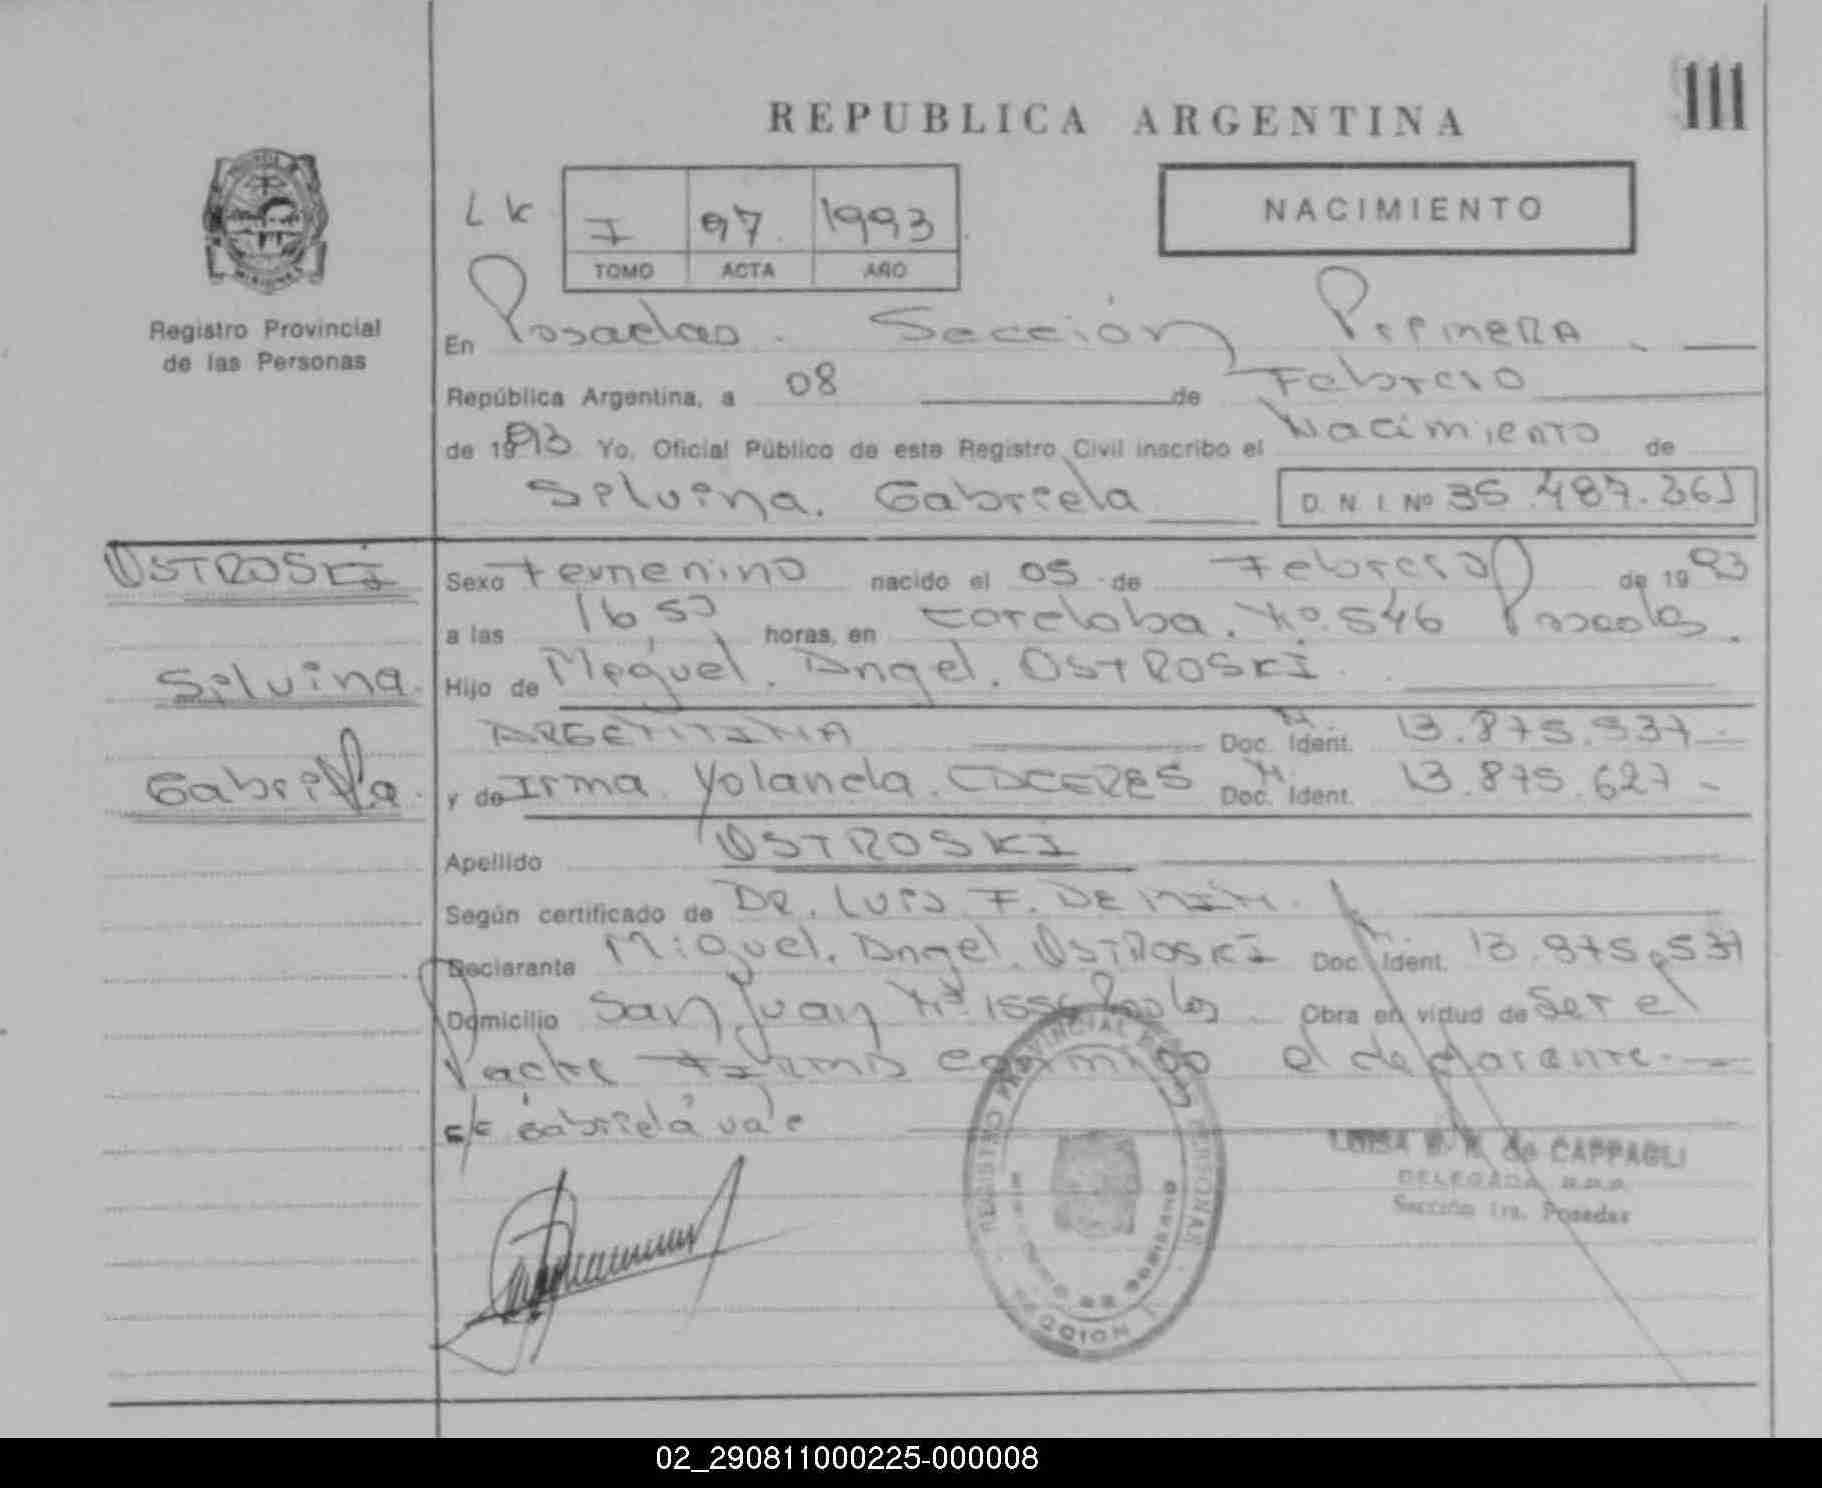 111
REPUBLICA ARGENTINA
LK
I 97 1993
TOMO ACTA AÑO
NACIMIENTO
Registro Provincial
de las Personas
En Posadas. Sección Primera.
República Argentina, a 08 de Febrero
de 1993 Yo, Oficial Público de este Registro Civil inscribo el Nacimiento de
Silvina. Gabriela D. N. I. Nº 35.487.361
OSTROSKI
Silvina.
Gabriela.
Sexo Femenino nacido el 05 de Febrero de 1993
a las 16,50 horas, en Cordoba. Nº 546 Posadas.
Hijo de Miguel. Angel. OSTROSKI.
ARGENTINA Doc. Ident. 13.875.537.-
y de Irma Yolanda. CACERES Doc. Ident. 13.875.627-
Apellido OSTROSKI
Según certificado de DR. Luis F. DE
Declarante Miguel. Angel. OSTROSKI Doc. Ident. 13.875.537
Domicilio San Juan Nº Posadas Obra en virtud de Ser el
Padre Firma conmigo el declarante.-
"Gabriela" vale
REGISTRO PROVINCIAL DE LAS PERSONAS
SECCION 1
LUISA de CAPPAGLI
DELEGADA R.P.P.
Sección 1ra. Posadas
02_290811000225-000008